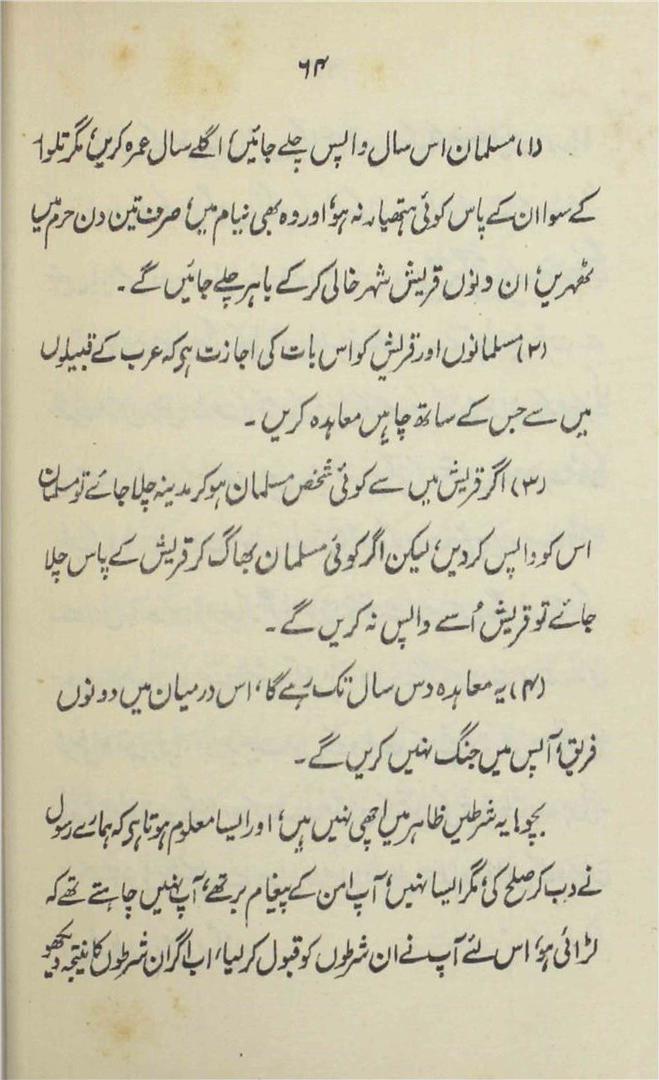 ۶۴
(۱) مسلمان اس سال واپس چلے جائیں، اگلے سال عمرہ کریں، مگر تلوا
کے سوا ان کے پاس کوئی ہتھیار نہ ہو، اور وہ بھی نیام میں، صرف تین دن حرم میں
ٹھہریں، ان دنوں قریش شہر خالی کر کے باہر چلے جائیں گے۔
(۲) مسلمانوں اور قریش کو اس بات کی اجازت ہی کہ عرب کے قبیلوں
میں سے جس کے ساتھ چاہیں معاہدہ کریں۔
(۳) اگر قریش میں سے کوئی شخص مسلمان ہو کر مدینہ چلا جائے تو مسلمان
اس کو واپس کر دیں، لیکن اگر کوئی مسلمان بھاگ کر قریش کے پاس چلا
جائے تو قریش اُسے واپس نہ کریں گے۔
(۴) یہ معاہدہ دس سال تک رہے گا، اس درمیان میں دونوں
فریق، آپس میں جنگ نہیں کریں گے۔
بچو! یہ شرطیں ظاہر میں اچھی نہیں ہیں، اور ایسا معلوم ہوتا ہی کہ ہمارے رسول
نے دب کر صلح کی، مگر ایسا نہیں، آپ امن کے پیغام بر تھے، آپ نہیں چاہتے تھے کہ
لڑائی ہو، اس لئے آپ نے ان شرطوں کو قبول کر لیا، اب اگر ان شرطوں کا نتیجہ دیکھو